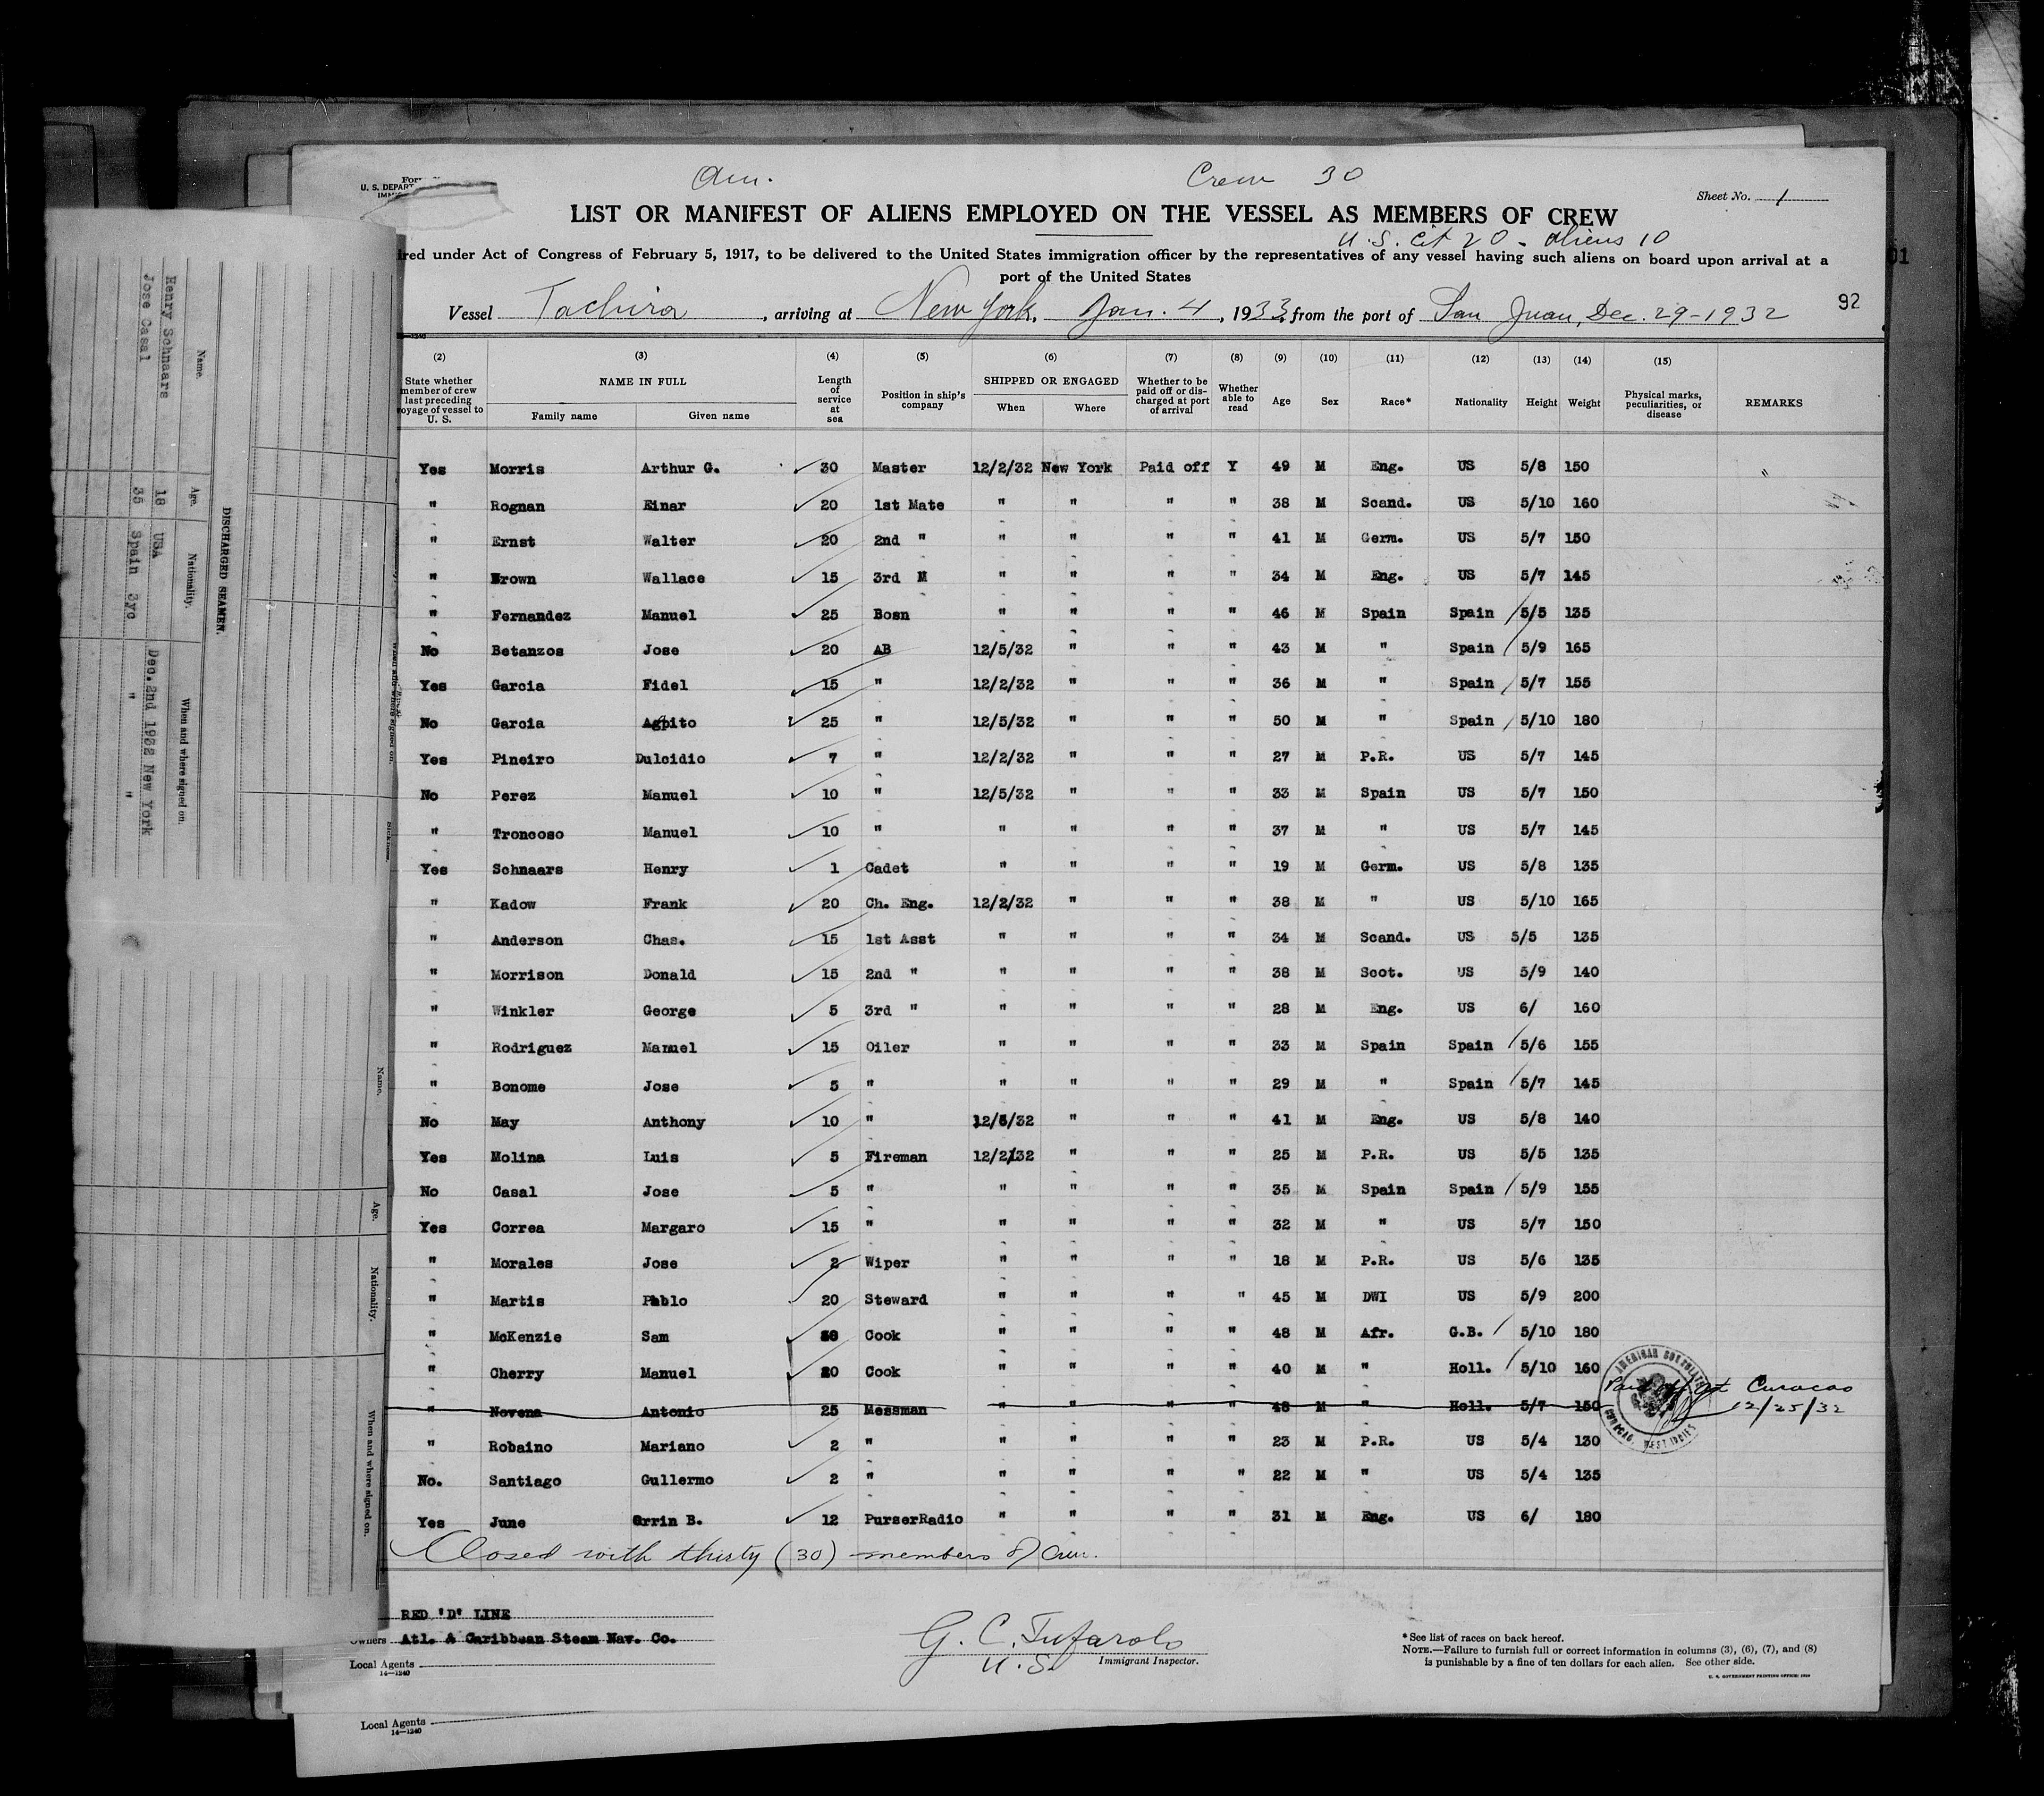 Am.
Crew 30
U. S. DEPART
Sheet No. 1
LIST OR MANIFEST OF ALIENS EMPLOYED ON THE VESSEL AS MEMBERS OF CREW
U.S. Cit 20 - Aliens 10
ired under Act of Congress of February 5, 1917, to be delivered to the United States immigration officer by the representatives of any vessel having such aliens on board upon arrival at a
port of the United States
Vessel Tachira, arriving at New York, Jan. 4, 1933, from the port of San Juan, Dec. 29-1932
92
01
(2) (3) (4) (5) (6) (7) (8) (9) (10) (11) (12) (13) (14) (15)
State whether member of crew last preceding oyage of vessel to U. S. NAME IN FULL Family name Given name Length of service at sea Position in ship's company SHIPPED OR ENGAGED When Where Whether to be paid off or discharged at port of arrival Whether able to read Age Sex Race* Nationality Height Weight Physical marks, peculiarities, or disease REMARKS
Yes Morris Arthur G. 30 Master 12/2/32 New York Paid off Y 49 M Eng. US 5/8 150
" Rognan Einar 20 1st Mate " " " " 38 M Scand. US 5/10 160
" Ernst Walter 20 2nd " " " " " 41 M Germ. US 5/7 150
" Brown Wallace 15 3rd M " " " " 34 M Eng. US 5/7 145
" Fernandez Manuel 25 Bosn " " " " 46 M Spain Spain 5/5 135
No Betanzos Jose 20 AB 12/5/32 " " " 43 M " Spain 5/9 165
Yes Garcia Fidel 15 " 12/2/32 " " " 36 M " Spain 5/7 155
No Garcia Agpito 25 " 12/5/32 " " " 50 M " Spain 5/10 180
Yes Pineiro Dulcidio 7 " 12/2/32 " " " 27 M P.R. US 5/7 145
No Perez Manuel 10 " 12/5/32 " " " 33 M Spain US 5/7 150
" Troncoso Manuel 10 " " " " " 37 M " US 5/7 145
Yes Schnaars Henry 1 Cadet " " " " 19 M Germ. US 5/8 135
" Kadow Frank 20 Ch. Eng. 12/2/32 " " " 38 M " US 5/10 165
" Anderson Chas. 15 1st Asst " " " " 34 M Scand. US 5/5 135
" Morrison Donald 15 2nd " " " " " 38 M Scot. US 5/9 140
" Winkler George 5 3rd " " " " " 28 M Eng. US 6/ 160
" Rodriguez Manuel 15 Oiler " " " " 33 M Spain Spain 5/6 155
" Bonome Jose 5 " " " " " 29 M " Spain 5/7 145
No May Anthony 10 " 12/5/32 " " " 41 M Eng. US 5/8 140
Yes Molina Luis 5 Fireman 12/2/32 " " " 25 M P.R. US 5/5 135
No Casal Jose 5 " " " " " 35 M Spain Spain 5/9 155
Yes Correa Margaro 15 " " " " " 32 M " US 5/7 150
" Morales Jose 2 Wiper " " " " 18 M P.R. US 5/6 135
" Martis Pablo 20 Steward " " " " 45 M DWI US 5/9 200
" McKenzie Sam Cook " " " " 48 M Afr. G.B. 5/10 180
" Cherry Manuel 20 Cook " " " " 40 M " Holl. 5/10 160
" Novena Antonio 25 Messman " " " " 48 M " Holl. 5/7 150 Paid off at Curacao 12/25/32
" Robaino Mariano 2 " " " " " 23 M P.R. US 5/4 130
No. Santiago Gullermo 2 " " " " " 22 M " US 5/4 135
Yes June Orrin B. 12 PurserRadio " " " " 31 M Eng. US 6/ 180
AMERICAN CONSULATE
CURACAO, WEST INDIES
Closed with thirty (30) members of Crew.
RED 'D' LINE
Owners Atl. & Caribbean Steam Nav. Co.
Local Agents
14-1240
G. C. Tufarolo
U.S. Immigrant Inspector.
*See list of races on back hereof.
NOTE.—Failure to furnish full or correct information in columns (3), (6), (7), and (8)
is punishable by a fine of ten dollars for each alien. See other side.
U. S. GOVERNMENT PRINTING OFFICE
Local Agents
14-1240
DISCHARGED SEAMEN.
Name. Age. Nationality. When and where signed on.
Henry Schnaars 18 USA Dec. 2nd 1932 New York
Jose Casal 35 Spain 3yc " "
Sickness.
Name. Age. Nationality. When and where signed on.